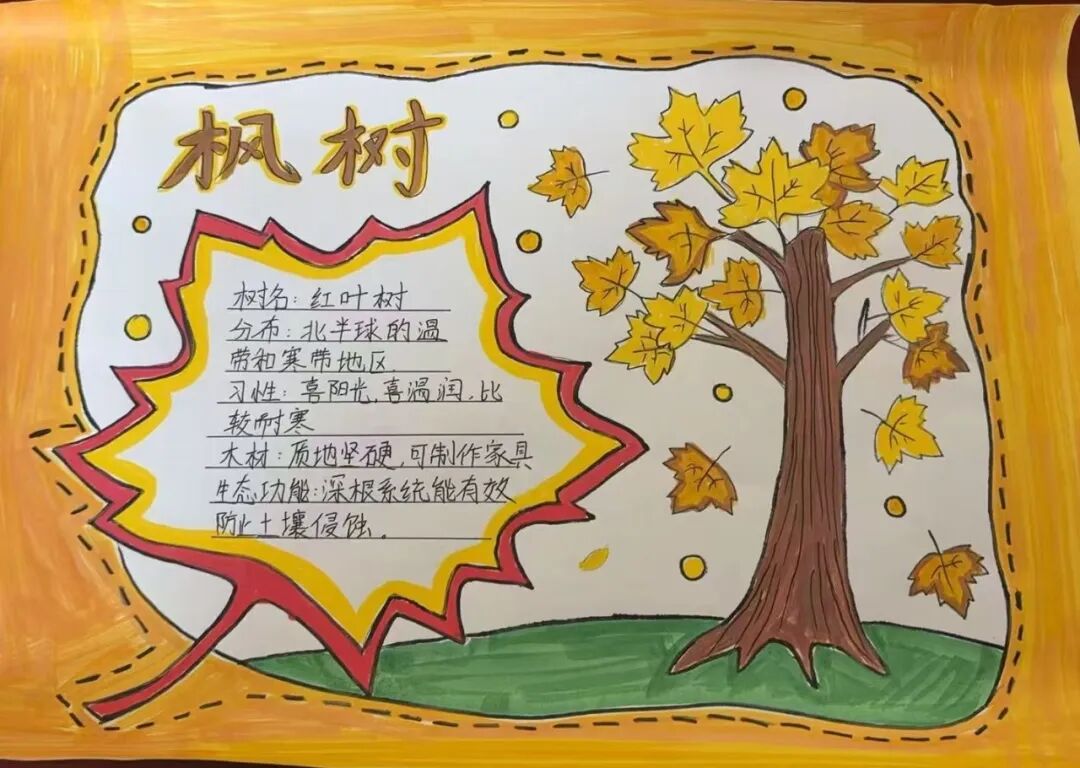 枫树
树名：红叶树
分布：北半球的温
带和寒带地区.
习性：喜阳光,喜湿润,比
较耐寒
木材：质地坚硬,可制作家具
生态功能：深根系统能有效
防止土壤侵蚀。